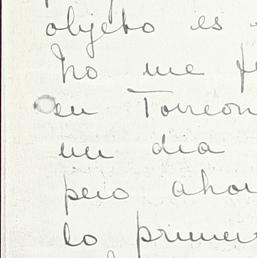 objeto es
No me f
en Torreon
un dia
pero ahor
lo primer